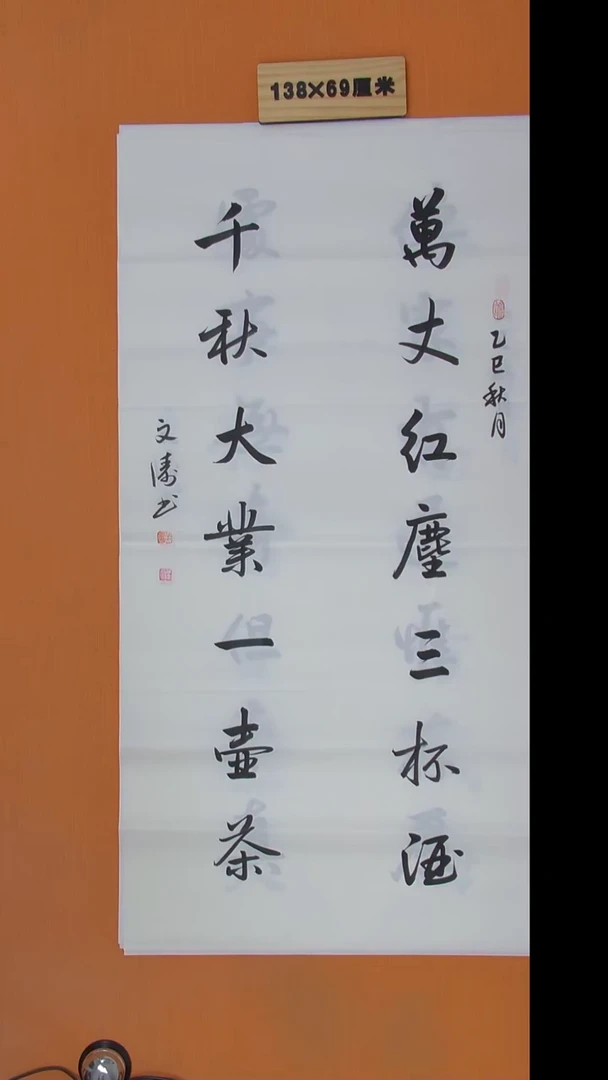 138×69厘米
乙巳秋月
萬丈紅塵三杯酒
千秋大業一壺茶
文濤书